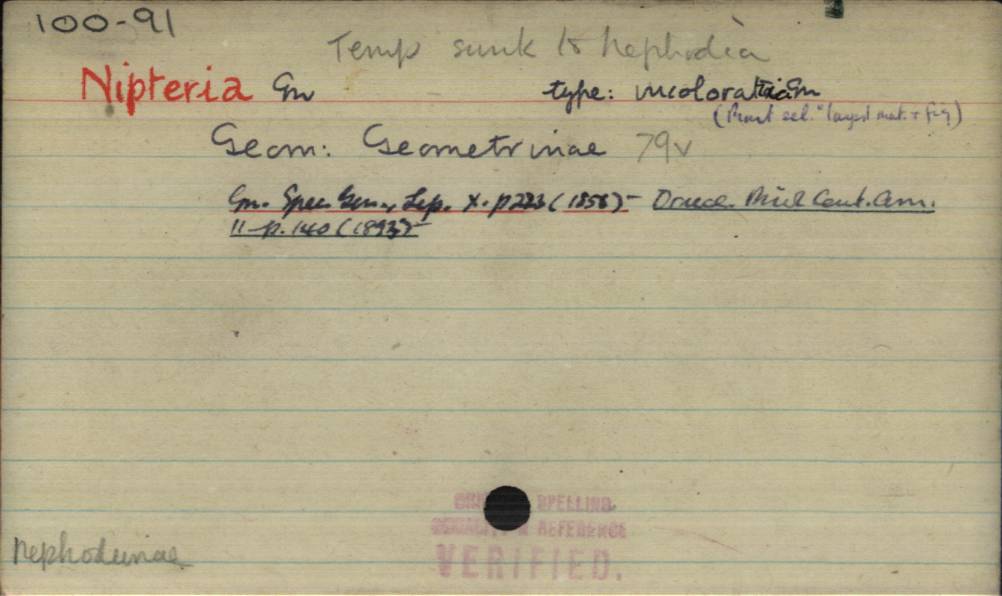 100-91
Temp sunk to Nephodia
Nipteria Gn type: incoloraria Gn
(Prout sel. "largest mat. + fig)
Geom: Geometrinae 79v
Gn. Spec. Gen., Lep. X. p223 (1858) - Druce. Biol Cent. Am.
11-p. 140 (1893) -
SPELLING
REFERENCE
VERIFIED.
Nephodiinae